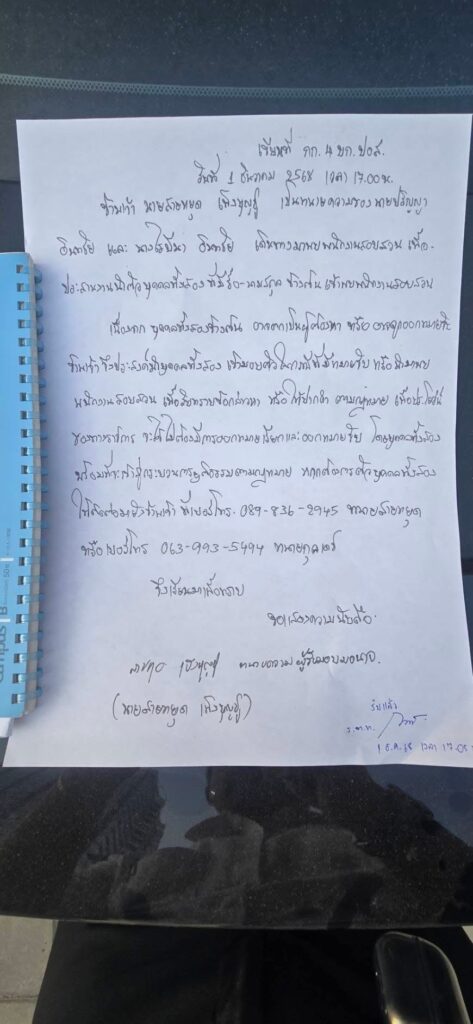 เขียนที่ กก. 4 บก. ปอศ.
วันที่ 1 ธันวาคม 2568 เวลา 17.00 น.
ข้าพเจ้า นายสายหยุด เพ็งบุญชู เป็นทนายความของ นายปริญญา
และ เดินทางมาพบพนักงานสอบสวน เพื่อ
ประสานงานนำตัวบุคคลทั้งสอง ที่มีชื่อ-นามสกุล ข้างต้น เข้าพบพนักงานสอบสวน
เนื่องจาก บุคคลทั้งสองข้างต้น อาจตกเป็นผู้ต้องหา หรือ อาจถูกออกหมายจับ
ข้าพเจ้า จึงประสงค์นำบุคคลทั้งสอง เข้ามอบตัว หรือ
พนักงานสอบสวน เพื่อรับทราบข้อกล่าวหา หรือ ให้ปากคำ ตามกฎหมาย เพื่อประโยชน์
ของทางราชการ จะได้ไม่ต้องมีการออกหมายเรียกและออกหมายจับ โดยบุคคลทั้งสอง
พร้อมที่จะเข้าสู่กระบวนการยุติธรรมตามกฎหมาย หากต้องการตัวบุคคลทั้งสอง
ให้ติดต่อมายังข้าพเจ้า ที่เบอร์โทร. 089-836-2945 ทนายสายหยุด
หรือ เบอร์โทร 063-993-5494
จึงเรียนมาเพื่อทราบ
ขอแสดงความนับถือ
ทนายความ ผู้รับมอบอำนาจ
(นายสายหยุด เพ็งบุญชู)
รับแล้ว
ร.ต.ท.
1 ธ.ค. 68 เวลา 17.05
campus B